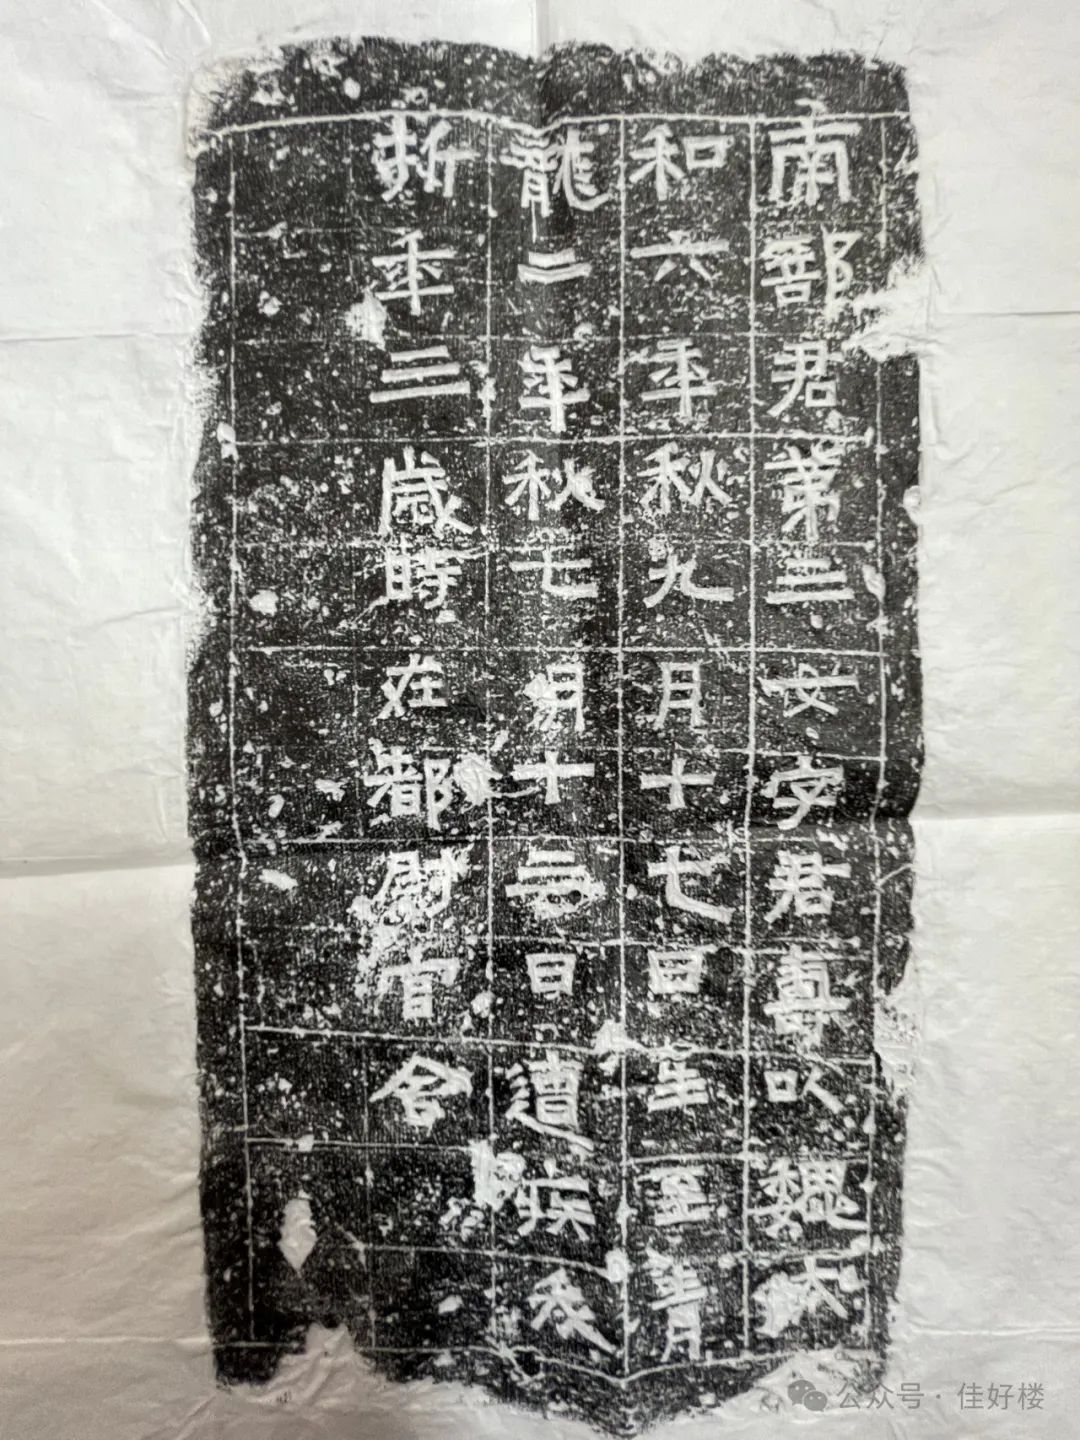 南部君第三女字君尊以魏太
和六年秋九月十七日生至青
龍二年秋七月十三日遭疾夭
折年三歲時在都尉官舍
公众号·佳好楼